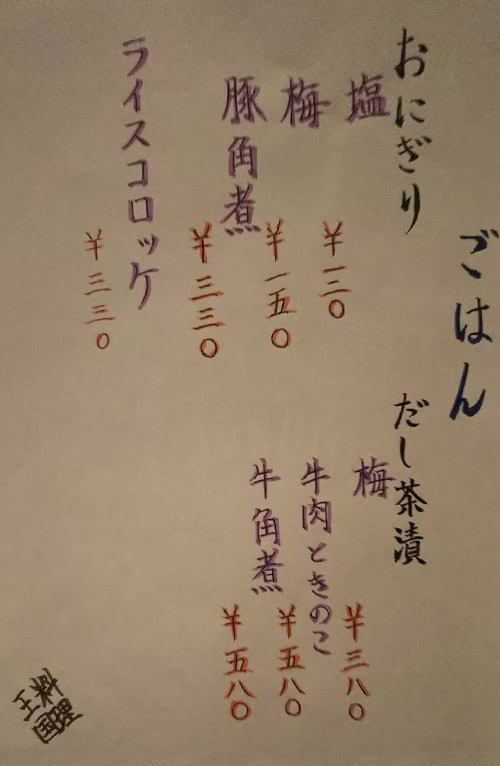 ごはん
おにぎり
塩
¥一三〇
梅
¥一五〇
豚角煮
¥三三〇
ライスコロッケ
¥三三〇
だし茶漬
梅
¥三八〇
牛肉ときのこ
¥五八〇
牛角煮
¥五八〇
料理
王国